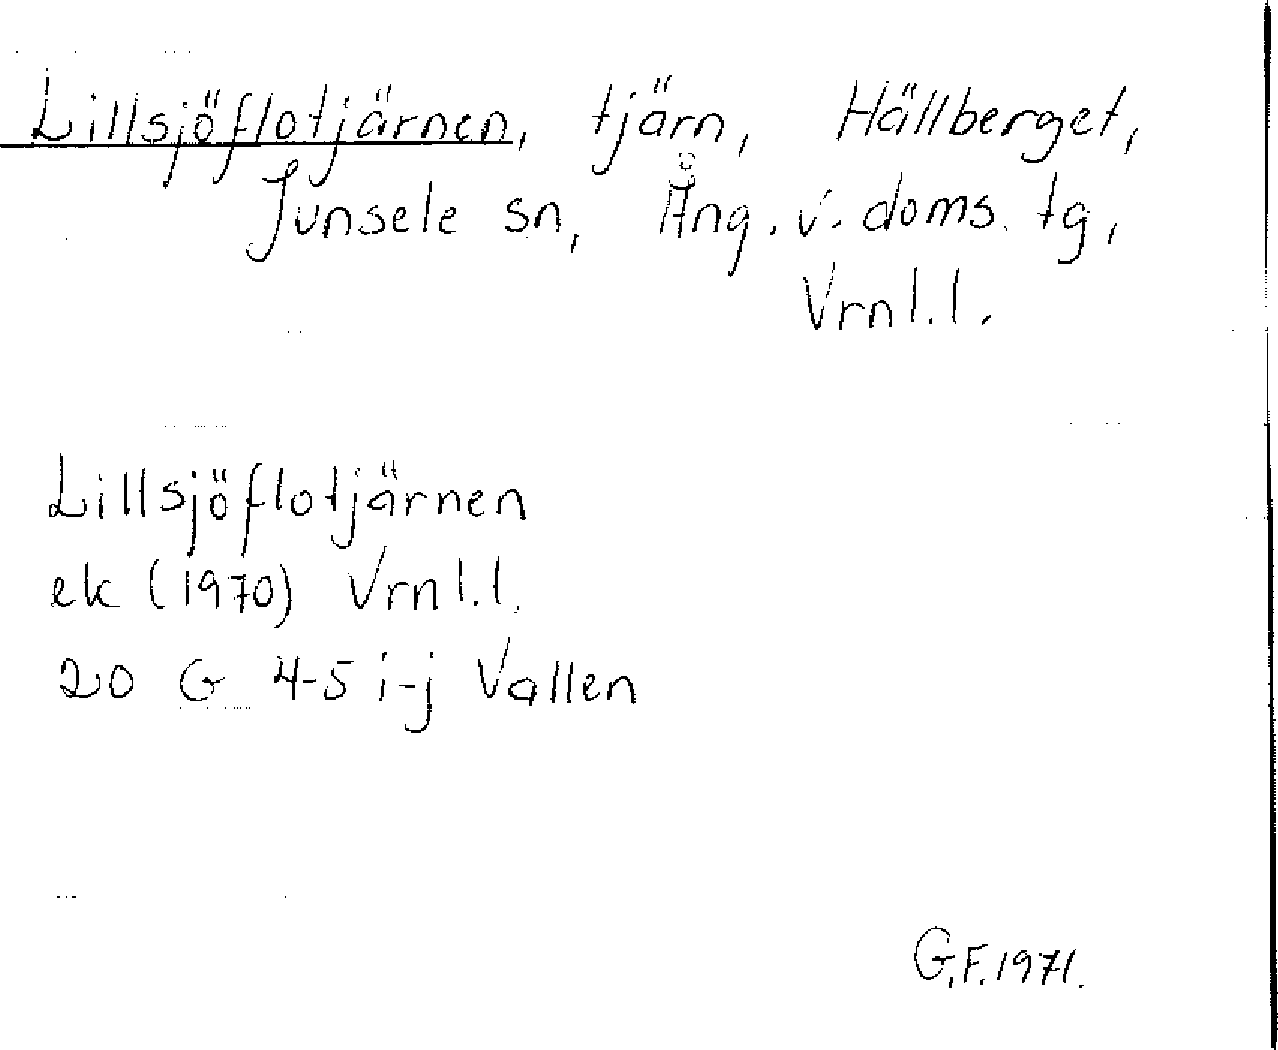 Lillsjöflotjärnen, tjärn, Hällberget,
Junsele sn, Ång. v. doms. tg,
Vrnl.l.
Lillsjöflotjärnen
ek (1970) Vrnl.l.
20 G 4-5 i-j Vallen
G.F. 1971.